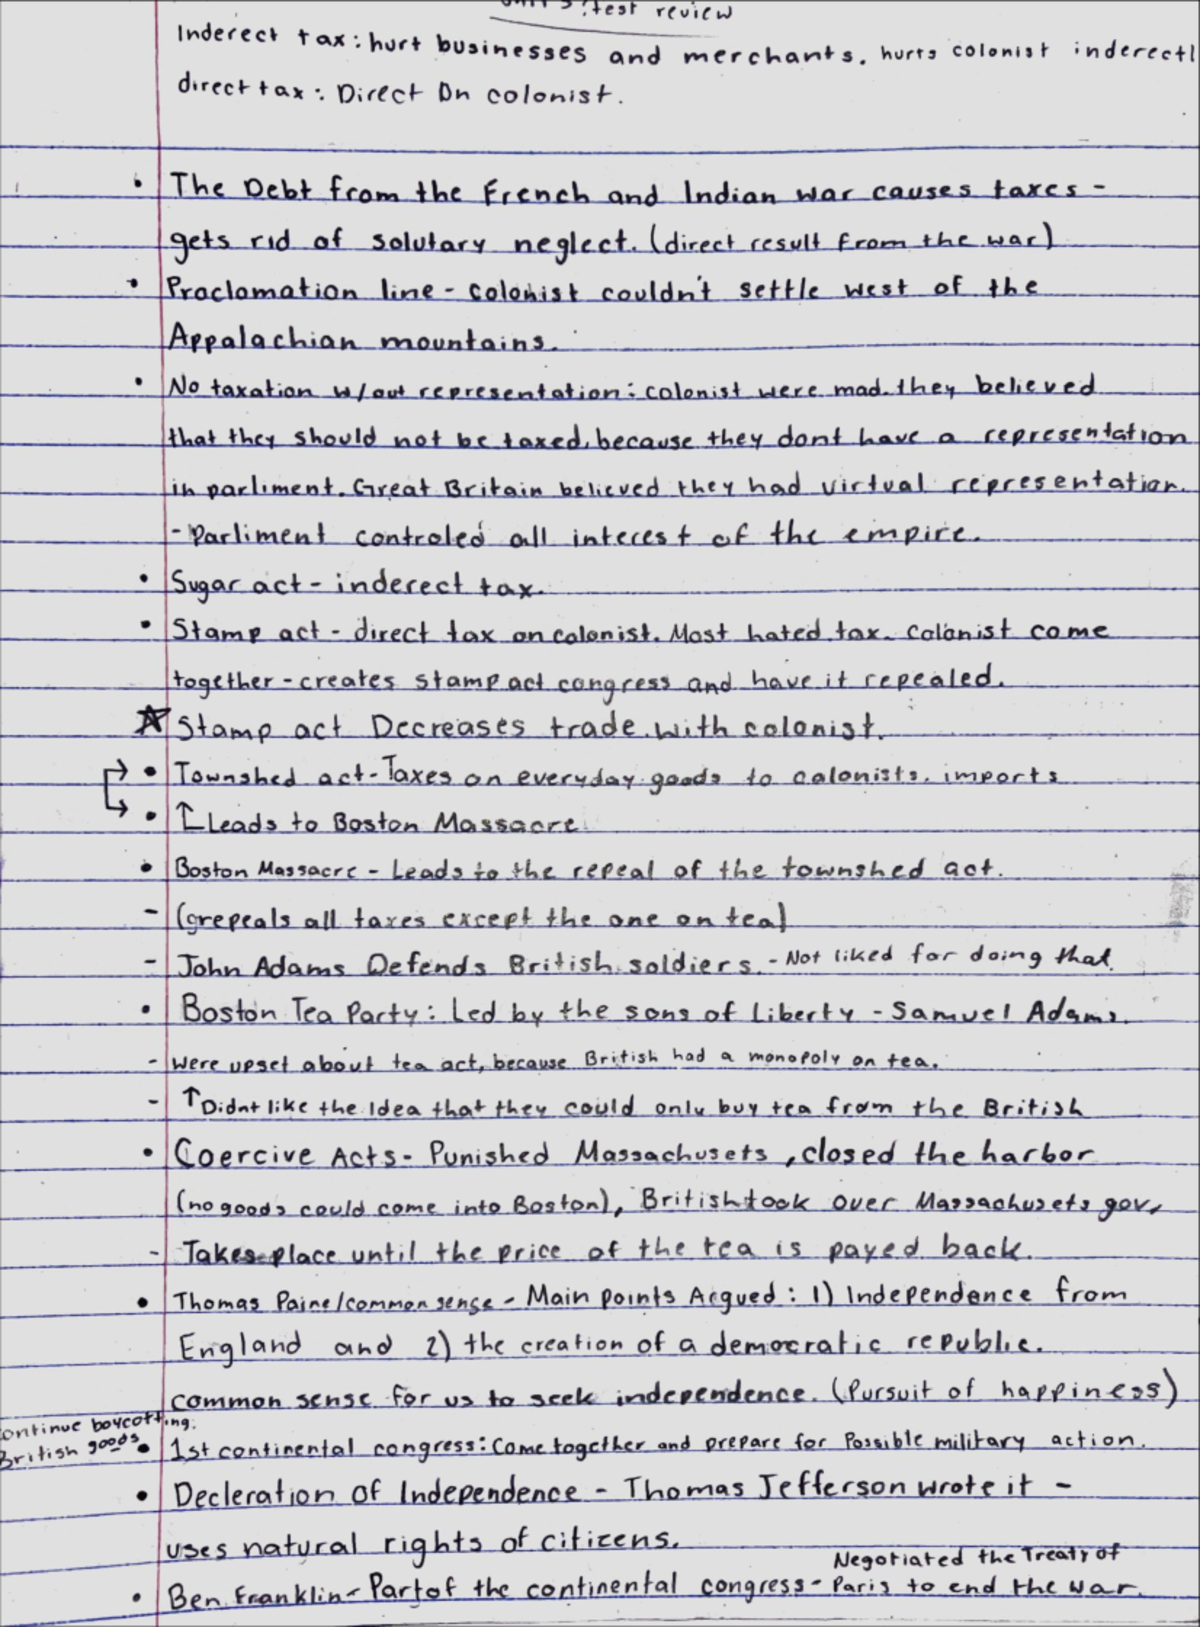 test review
Inderect tax: hurt businesses and merchants. hurts colonist inderectl
direct tax: Direct On colonist.
• The Debt from the French and Indian war causes taxes -
gets rid of solutary neglect. (direct result from the war)
• Proclomation line - colonist couldn't settle west of the
Appalachian mountains.
• No taxation w/out representation: colonist were mad. they believed
that they should not be taxed, because they dont have a representation
in parliment. Great Britain believed they had virtual representation.
- Parliment controled all interest of the empire.
• Sugar act - inderect tax.
• Stamp act - direct tax on colonist. Most hated tax. Colonist come
together - creates stamp act congress and have it repealed.
☆ Stamp act Decreases trade with colonist.
• Townshed act - Taxes on everyday goods to colonists. imports
• ↑ Leads to Boston Massacre
• Boston Massacre - Leads to the repeal of the townshed act.
- (grepeals all taxes except the one on tea)
- John Adams Defends British soldiers. - Not liked for doing that.
• Boston Tea Party: Led by the sons of Liberty - Samuel Adams.
- were upset about tea act, because British had a monopoly on tea.
- ↑ Didnt like the Idea that they could only buy tea from the British
• Coercive Acts - Punished Massachusets, closed the harbor
(no goods could come into Boston), British took over Massachusets gov.
- Takes place until the price of the tea is payed back.
• Thomas Paine/common sense - Main points Argued: 1) Independence from
England and 2) the creation of a democratic republic.
common sense for us to seek independence. (Pursuit of happiness)
ontinue boycotting.
British goods
• 1st continental congress: Come together and prepare for Possible military action.
• Decleration of Independence - Thomas Jefferson wrote it -
uses natural rights of citizens.
• Ben Franklin - Part of the continental congress - Negotiated the Treaty of
Paris to end the war.